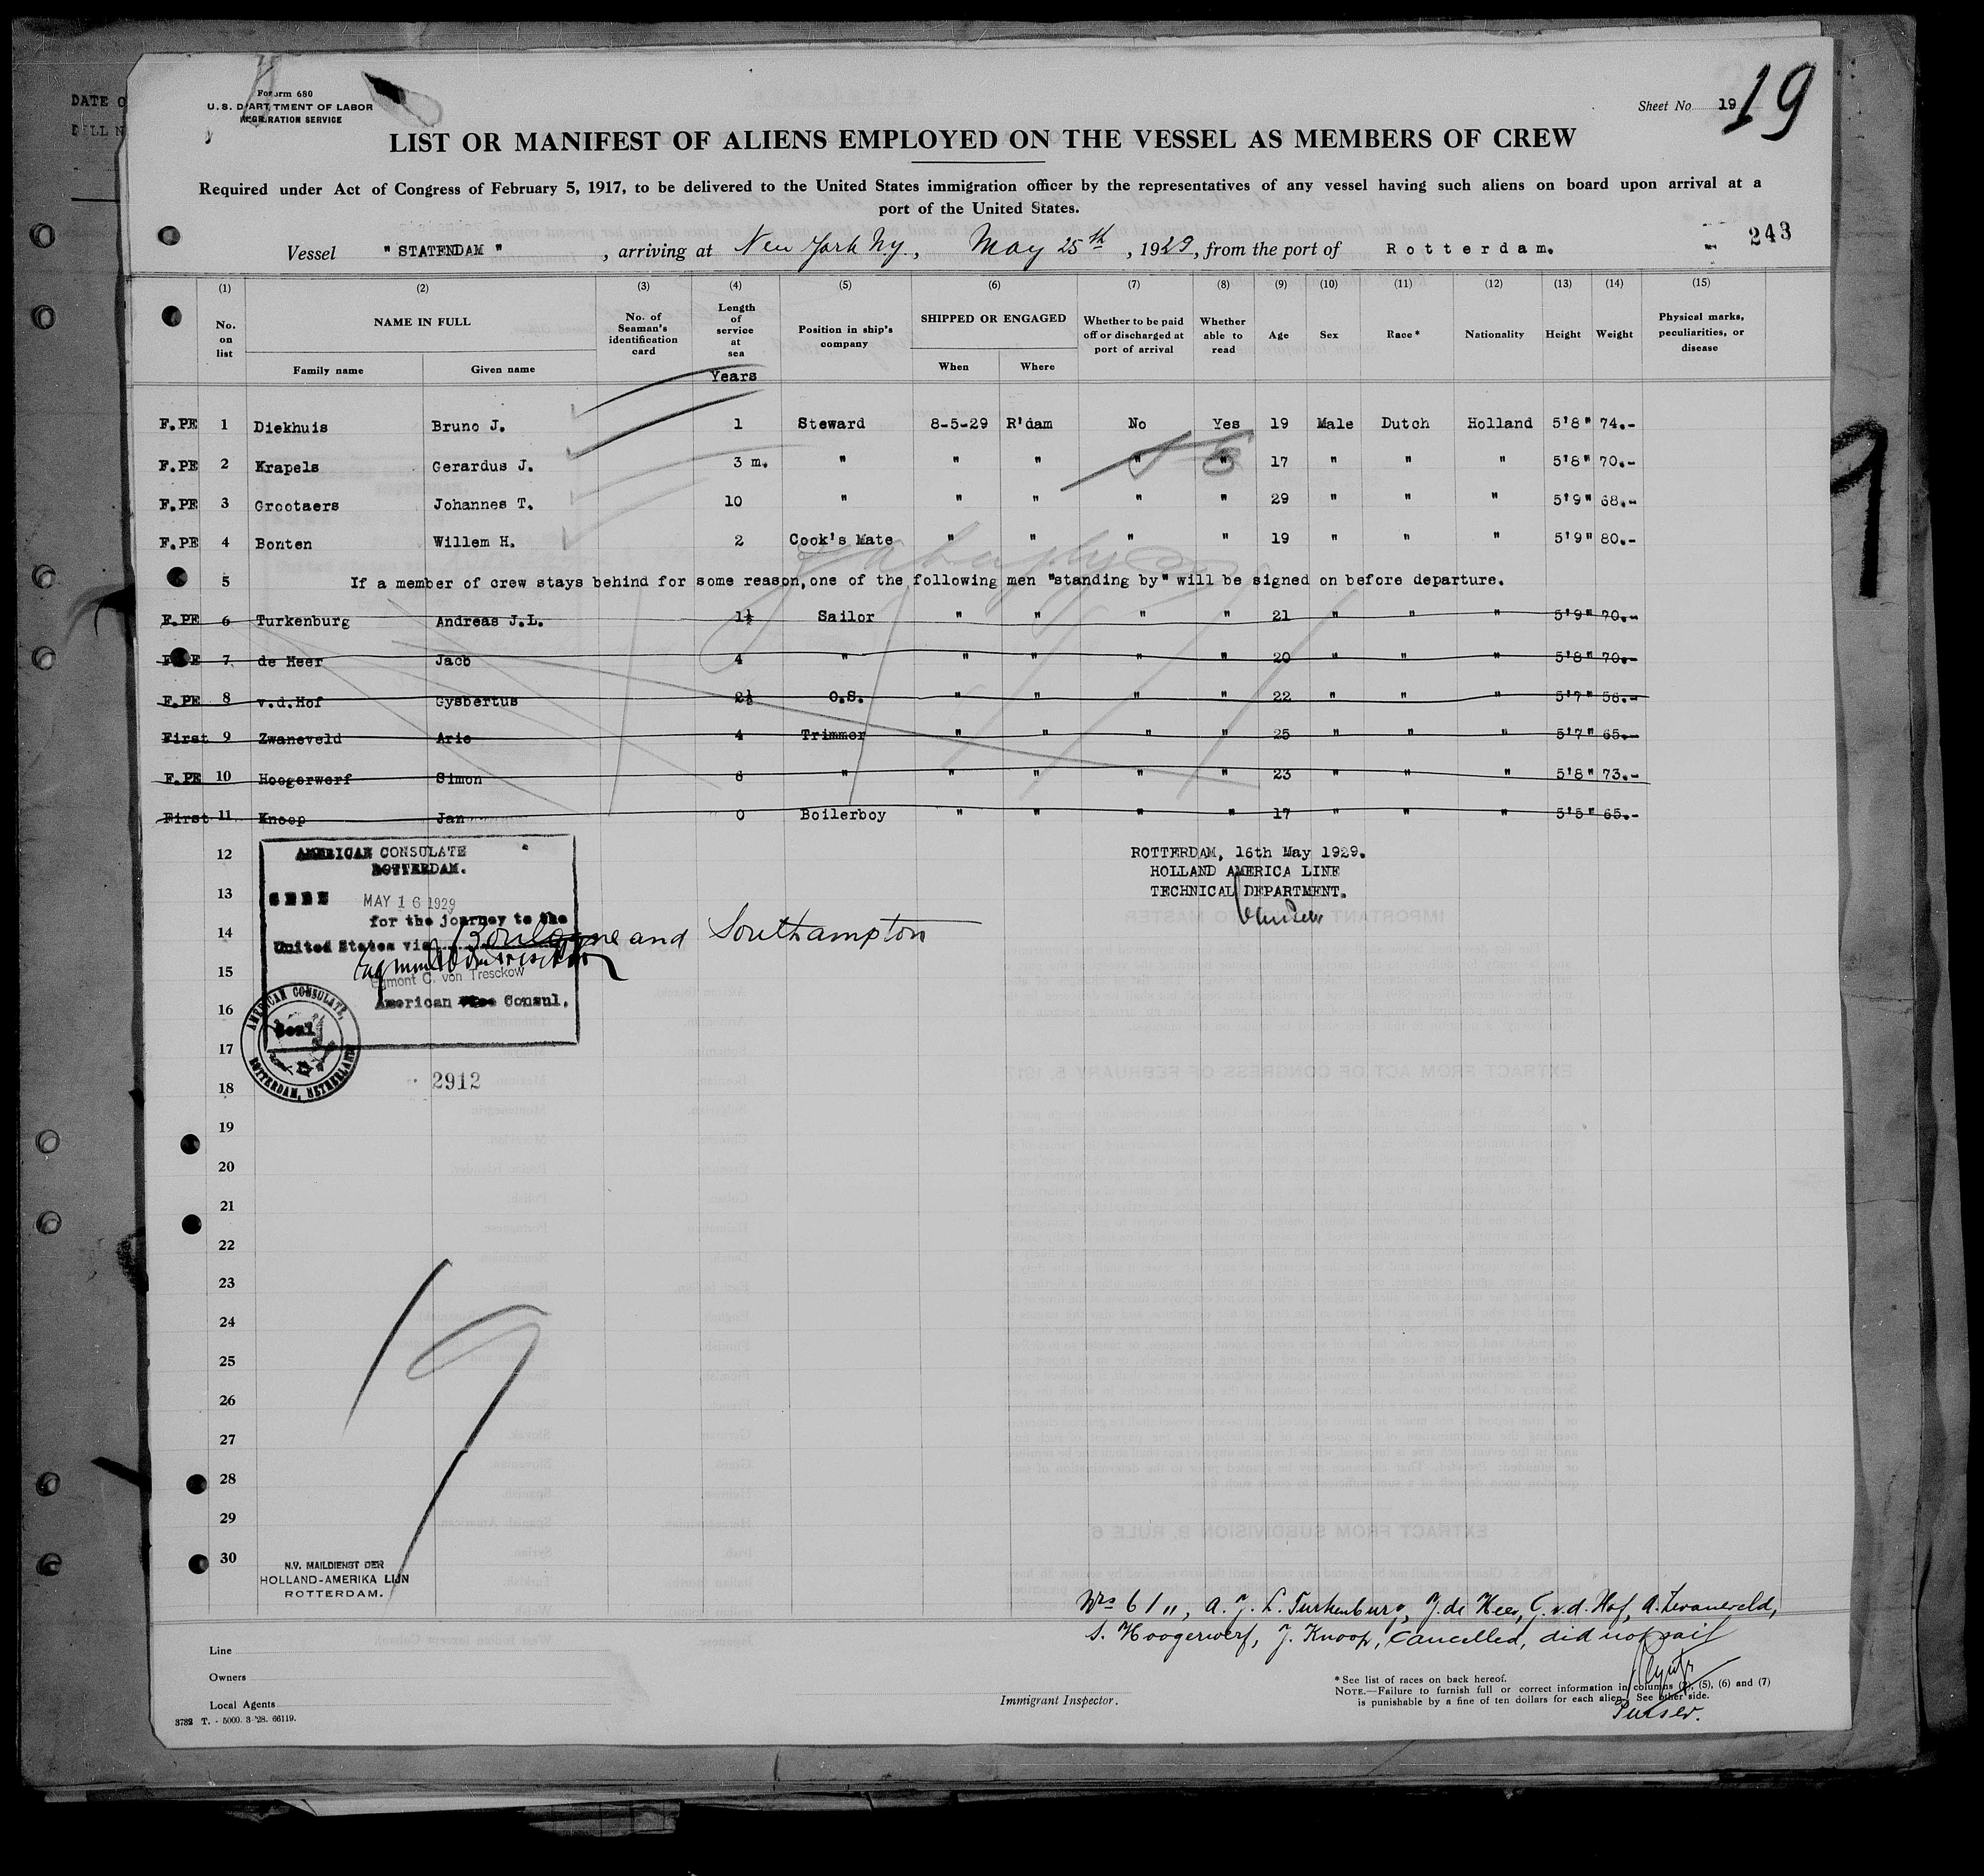 Form 680
U.S. DEPARTMENT OF LABOR
IMMIGRATION SERVICE
Sheet No. 19
19
LIST OR MANIFEST OF ALIENS EMPLOYED ON THE VESSEL AS MEMBERS OF CREW
Required under Act of Congress of February 5, 1917, to be delivered to the United States immigration officer by the representatives of any vessel having such aliens on board upon arrival at a
port of the United States.
Vessel "STATENDAM", arriving at New York N.y., May 25th, 1929, from the port of Rotterdam.
243
(1) (2) (3) (4) (5) (6) (7) (8) (9) (10) (11) (12) (13) (14) (15)
No. on list NAME IN FULL Family name Given name No. of Seaman's identification card Length of service at sea Position in ship's company SHIPPED OR ENGAGED When Where Whether to be paid off or discharged at port of arrival Whether able to read Age Sex Race* Nationality Height Weight Physical marks, peculiarities, or disease
Years
F.PE 1 Diekhuis Bruno J. 1 Steward 8-5-29 R'dam No Yes 19 Male Dutch Holland 5'8" 74.-
F.PE 2 Krapels Gerardus J. 3 m. " " " " " 17 " " " 5'8" 70.-
F.PE 3 Grootaers Johannes T. 10 " " " " " 29 " " " 5'9" 68.-
F.PE 4 Bonten Willem H. 2 Cook's Mate " " " " 19 " " " 5'9" 80.-
5 If a member of crew stays behind for some reason,one of the following men "standing by" will be signed on before departure.
F.PE 6 Turkenburg Andreas J.L. 1½ Sailor " " " " 21 " " " 5'9" 70.-
F.PE 7 de Heer Jacb 4 " " " " " 20 " " " 5'8" 70.-
F.PE 8 v.d.Hof Gysbertus 2½ O.S. " " " " 22 " " " 5'7" 56.-
First 9 Zwaneveld Arie 4 Trimmer " " " " 25 " " " 5'7" 65.-
F.PE 10 Hoogerwerf Simon 6 " " " " " 23 " " " 5'8" 73.-
First 11 Knoop Jan 0 Boilerboy " " " " 17 " " " 5'5" 65.-
12
13
14
15
16
17
18
19
20
21
22
23
24
25
26
27
28
29
30
AMERICAN CONSULATE
ROTTERDAM.
SEEN MAY 16 1929
for the journey to the
United States via Boulogne and Southampton
Egmont C. von Tresckow
American Vice Consul.
AMERICAN CONSULATE,
Seal
ROTTERDAM, NETHERLANDS
2912
ROTTERDAM, 16th May 1929.
HOLLAND AMERICA LINE
TECHNICAL DEPARTMENT.
19
N.V. MAILDIENST DER
HOLLAND-AMERIKA LIJN
ROTTERDAM.
Nrs 6/11, A. J. L. Turkenburg, J. de Heer, G. v.d. Hof, A. Zwaneveld,
S. Hoogerwerf, J. Knoop, cancelled, did not sail
Purser.
Line
Owners
Local Agents
3782 T. - 5000. 3-'28. 66119.
Immigrant Inspector.
*See list of races on back hereof.
NOTE.—Failure to furnish full or correct information in columns (2), (5), (6) and (7)
is punishable by a fine of ten dollars for each alien. See other side.